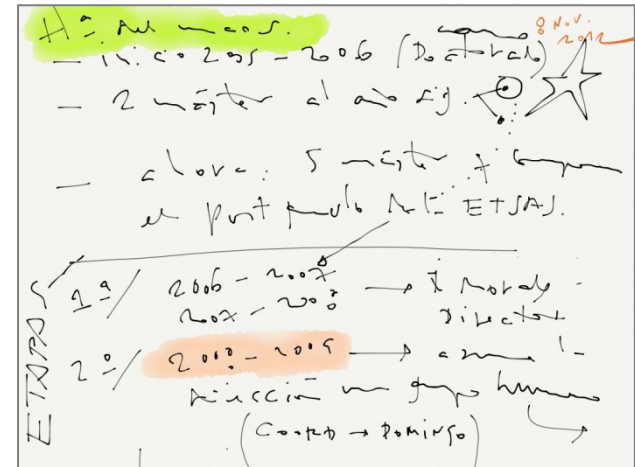 Hª del macos.
8 Nov. 2012
— inicio 2005 - 2006 (Doctorado)
— 2 máster al año sig.
— ahora: 5 máster y
el postgrado de la ETSAS.
ETAPAS
1ª/ 2006 - 2007
2007 - 2008 → Director
2º/ 2008 - 2009 → asume la
dirección un grupo humano
(COORD → DOMINGO)